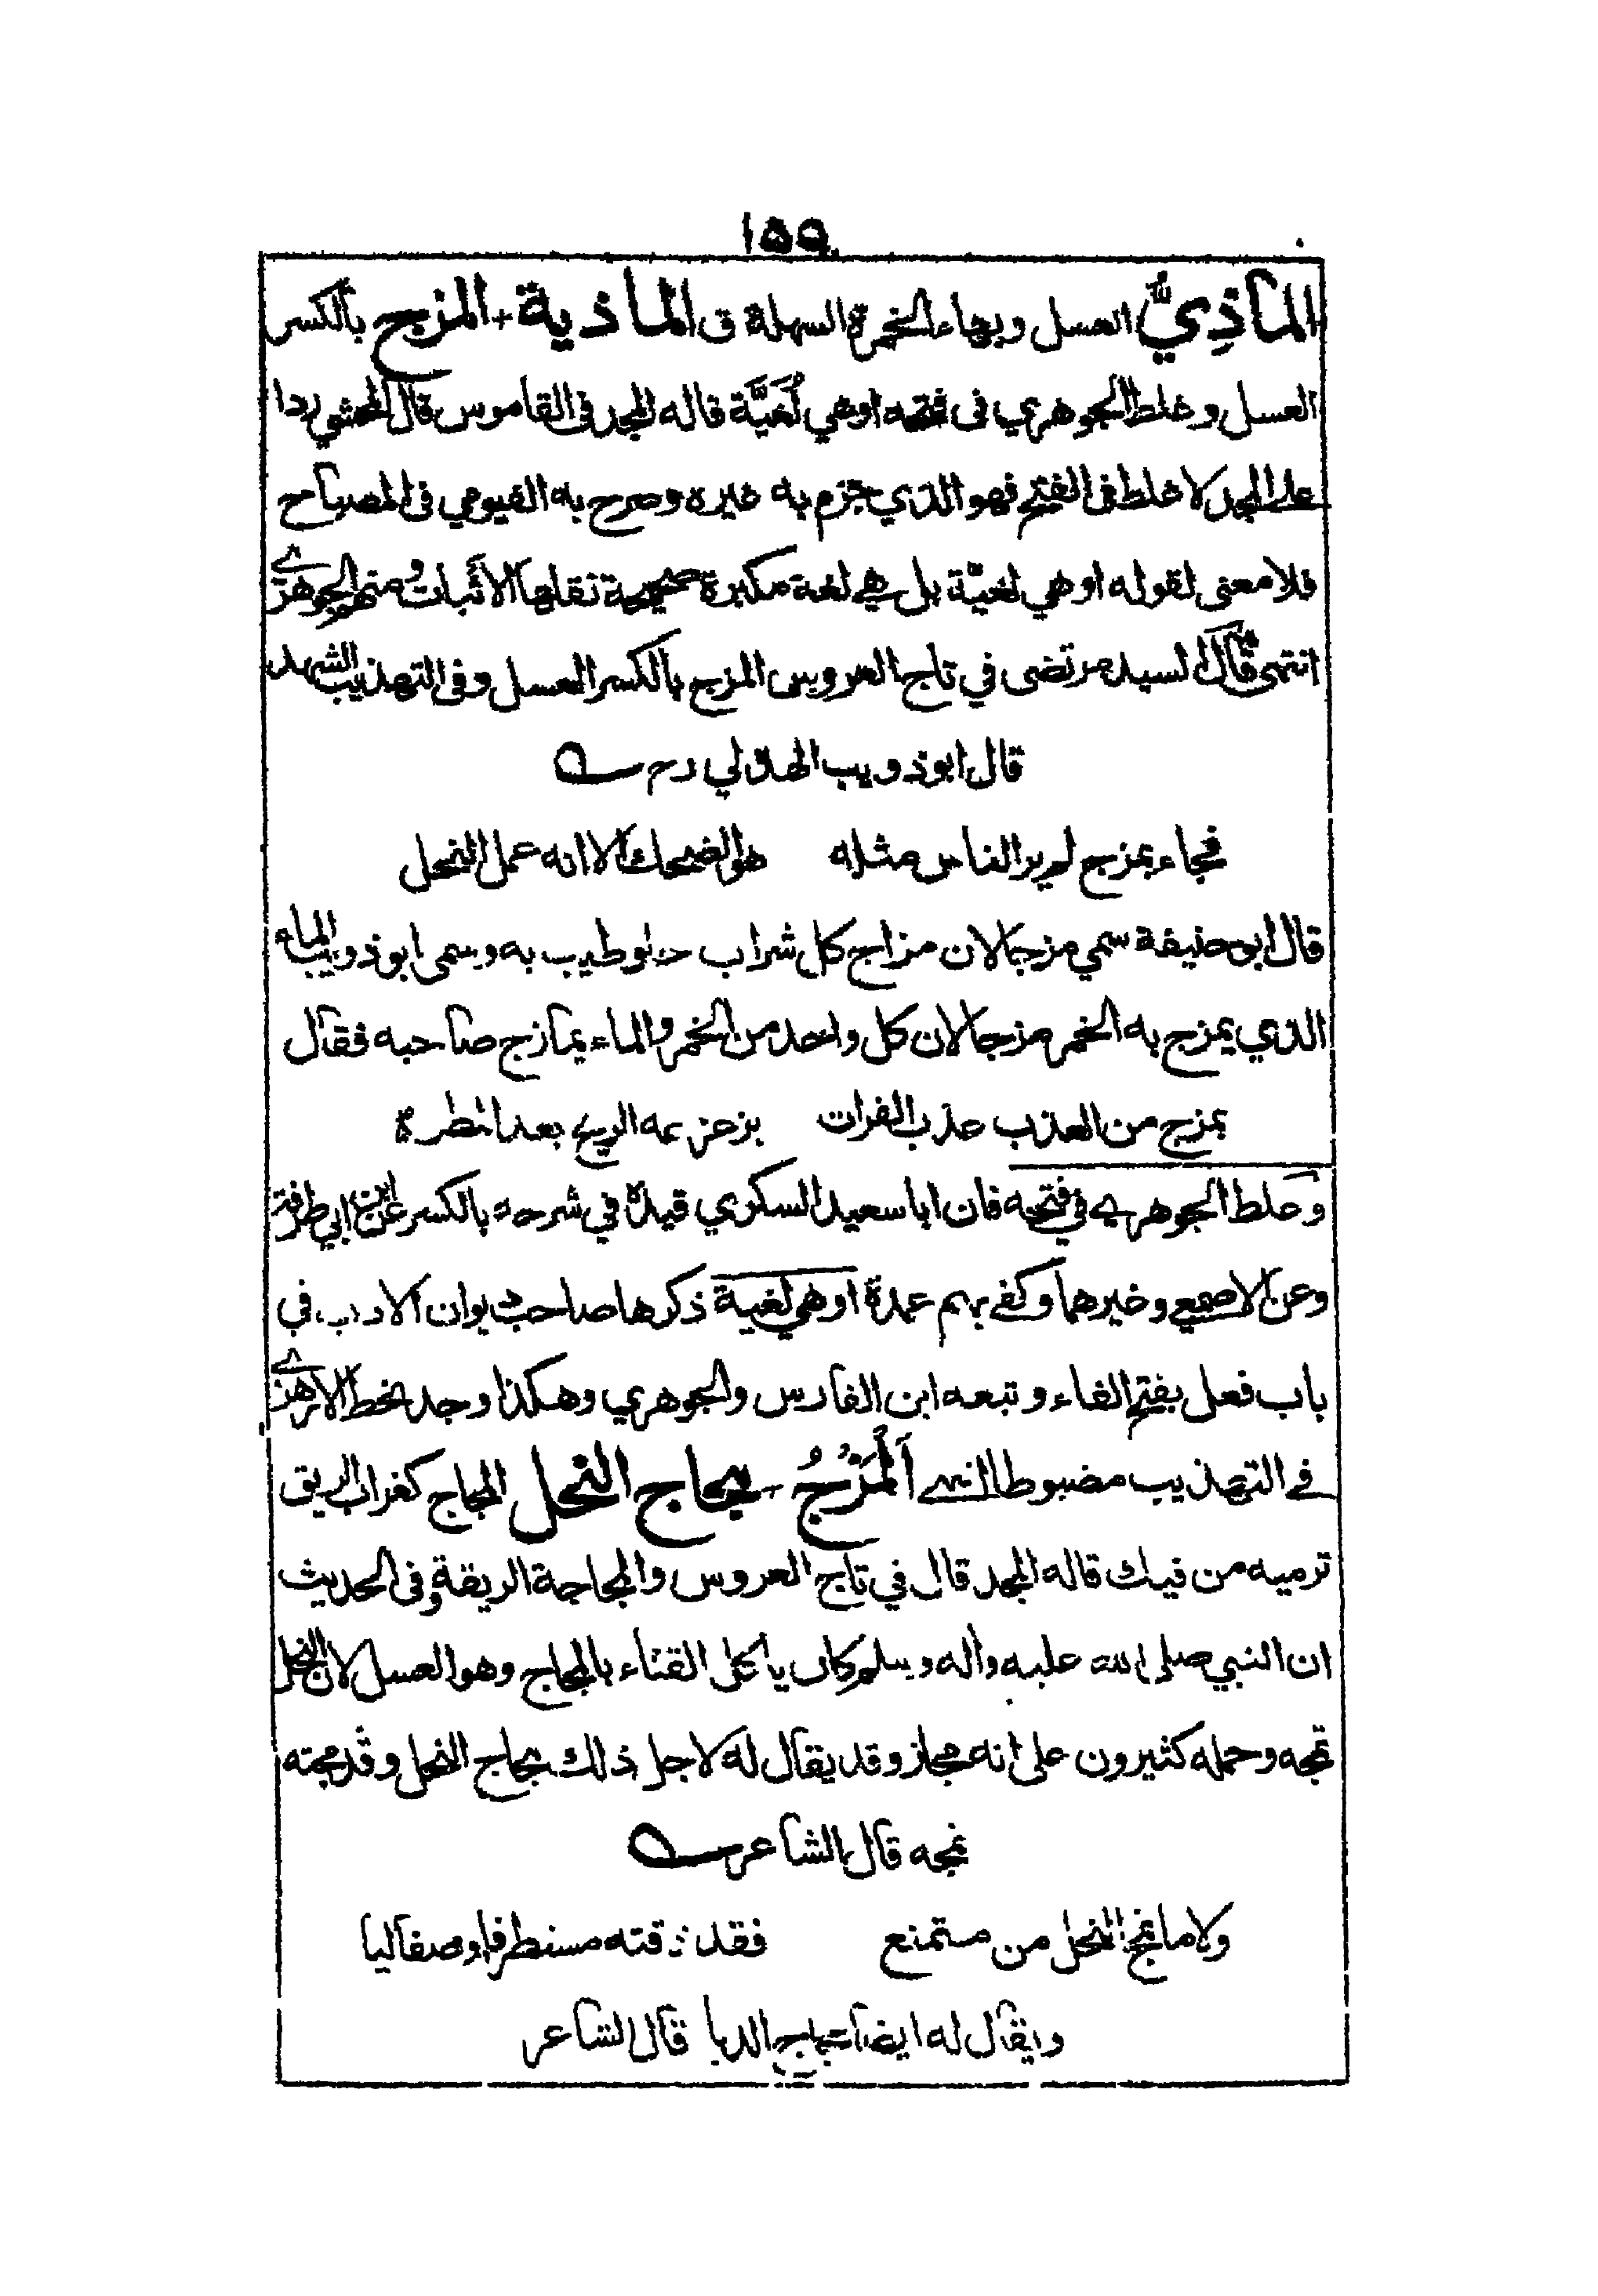 ١٥٥
الماذِيُّ العسل وبهاء الخمرة السهلة ق الماذية + المزج بالكسر
العسل وغلط الجوهري فى فتحه اوهي لُغَيَّة قاله المجد فى القاموس قال المحشي ردا
على المجد لا غلط فى الفتح فهو الذي جزم به غيره وصرح به الفيومي فى المصباح
فلا معنى لقوله اوهي لغيّة بل هي لغة مكبرة صحيحة نقلها الاثبات ومنهم الجوهري
انتهى قال السيد مرتضى في تاج العروس المزج بالكسر العسل وفى التهذيب الشهد
قال ابو ذويب الهذلي رح
فجاء بمزج لم ير الناس مثله هو الضحك الا انه عمل النحل
قال ابو حنيفة سمي مزجا لان مزاج كل شراب حلو طيب به وسمى ابو ذويب الماء
الذي يمزج به الخمر مزجا لان كل واحد من الخمر والماء يمازج صاحبه فقال
بمزج من العذب عذب الفرات يزعزعه الريح بعد المطرة
وغلط الجوهري في فتحه فان ابا سعيد السكري قيده في شرحه بالكسر عن ابن ابي طرفة
وعن الاصمعي وغيرهما وكفى بهم عمدة اوهي لغية ذكرها صاحب ديوان الادب في
باب فعل بفتح الفاء وتبعه ابن الفارس والجوهري وهكذا وجد بخط الازهري
في التهذيب مضبوطا انتهى اَلْمَزْجُ + مجاج النحل المجاج كغراب الريق
ترميه من فيك قاله المجد قال في تاج العروس والمجاجة الريقة وفى الحديث
ان النبي صلى الله عليه واله وسلم كان ياكل القثاء بالمجاج وهو العسل لان النحل
تمجه وحمله كثيرون على انه مجاز وقد يقال له لاجل ذلك مجاج النحل وقد مجته
تمجه قال الشاعر
ولا ما تمج النحل من متمنع فقد ذقته مستطرفا وصفاليا
ويقال له ايضا مجاج الدبا قال الشاعر